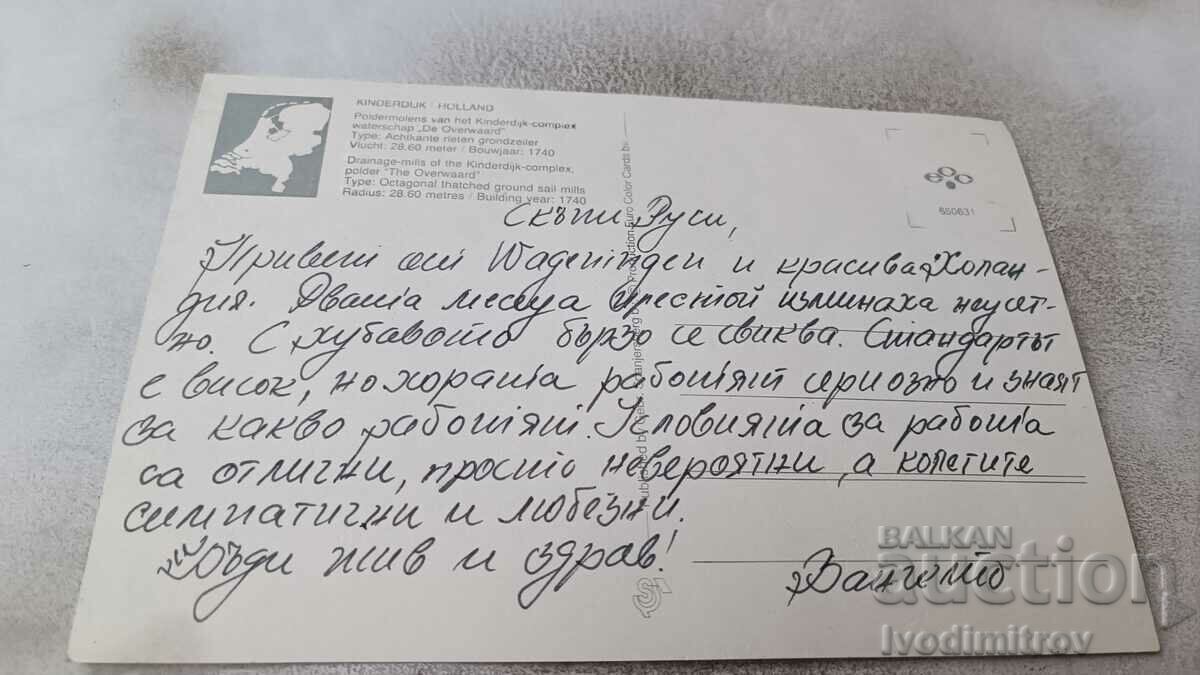 KINDERDIJK / HOLLAND
Poldermolens van het Kinderdijk-complex
waterschap „De Overwaard"
Type: Achtkante rieten grondzeiler
Vlucht: 28.60 meter / Bouwjaar: 1740
Drainage-mills of the Kinderdijk-complex,
polder "The Overwaard"
Type: Octagonal thatched ground sail mills
Radius: 28.60 metres / Building year: 1740
650631
Скъпи Руси,
Привет от Wageningen и красива Холан-
дия. Двата месеца престой изминаха неусет-
но. С хубавото бързо се свиква. Стандартът
е висок, но хората работят сериозно и знаят
за какво работят. Условията за работа
са отлични, просто невероятни, а колегите
симпатични и любезни.
Бъди жив и здрав!
Ванчето
Production Euro Color Cards bv
BALKAN
auction
Ivodimitrov